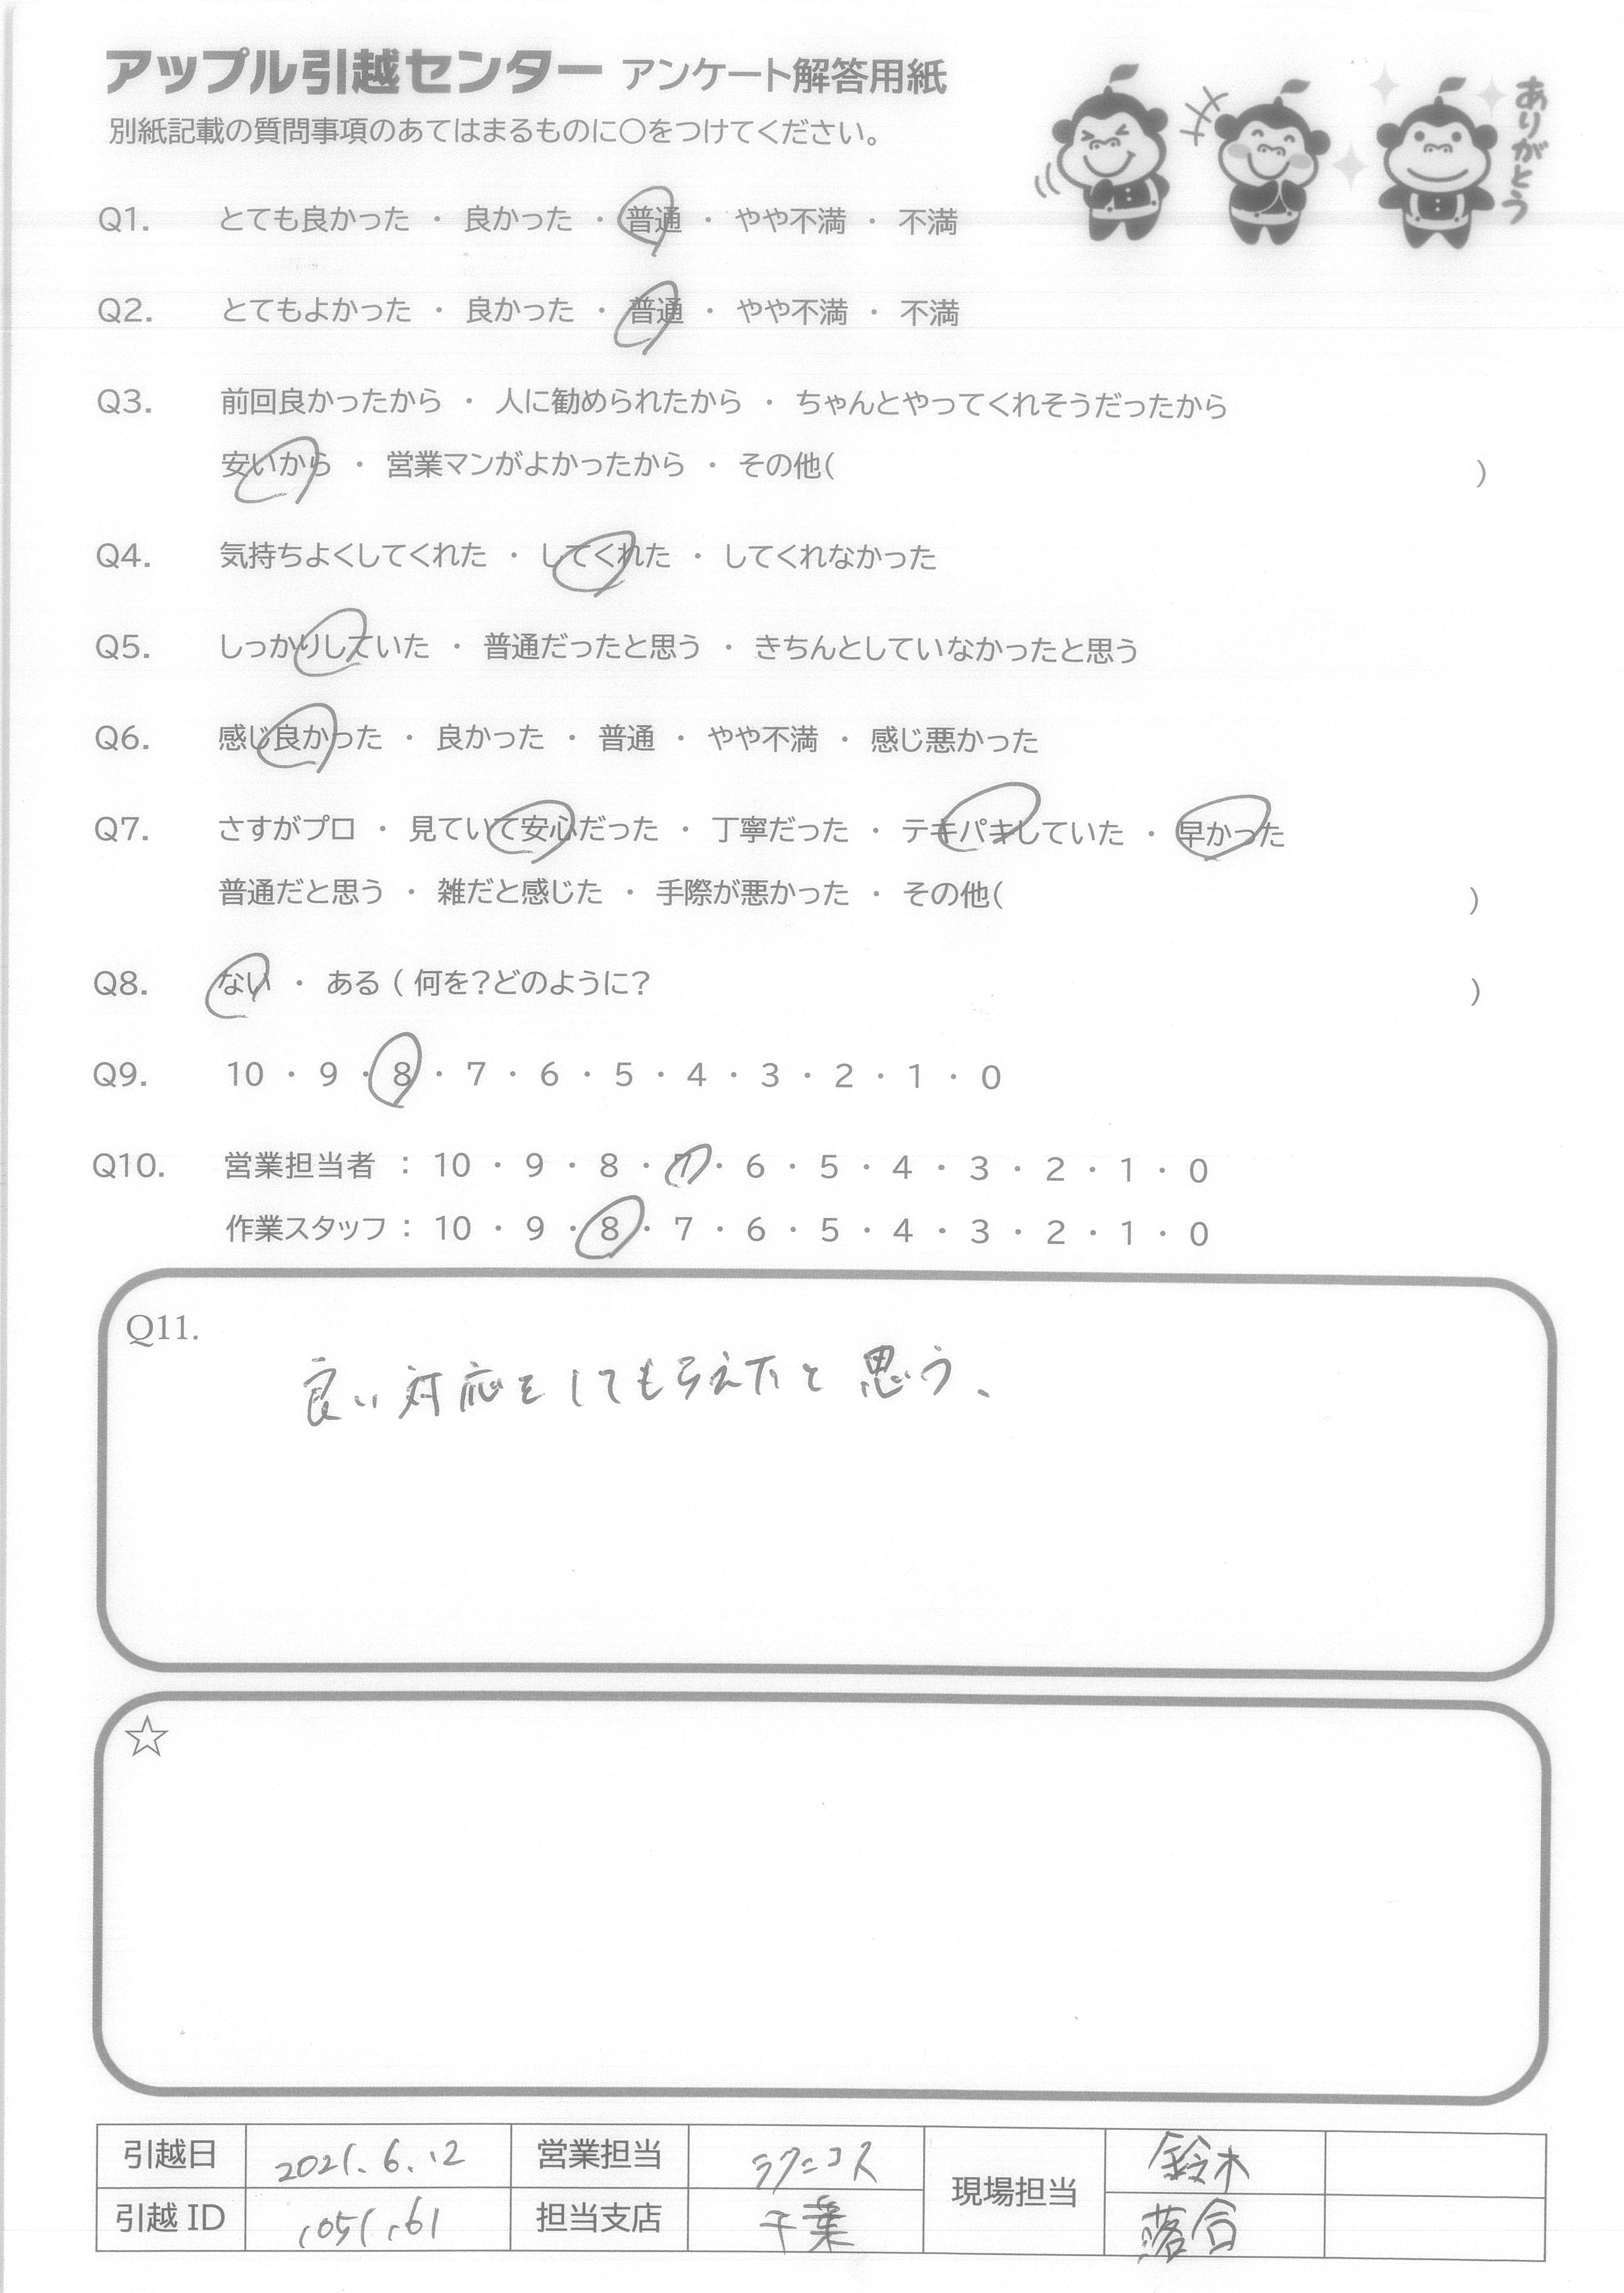 アップル引越センター アンケート解答用紙
ありがとう
別紙記載の質問事項のあてはまるものに○をつけてください。
Q1. とても良かった ・ 良かった ・ 普通 ・ やや不満 ・ 不満
Q2. とてもよかった ・ 良かった ・ 普通 ・ やや不満 ・ 不満
Q3. 前回良かったから ・ 人に勧められたから ・ ちゃんとやってくれそうだったから
安いから ・ 営業マンがよかったから ・ その他( )
Q4. 気持ちよくしてくれた ・ してくれた ・ してくれなかった
Q5. しっかりしていた ・ 普通だったと思う ・ きちんとしていなかったと思う
Q6. 感じ良かった ・ 良かった ・ 普通 ・ やや不満 ・ 感じ悪かった
Q7. さすがプロ ・ 見ていて安心だった ・ 丁寧だった ・ テキパキしていた ・ 早かった
普通だと思う ・ 雑だと感じた ・ 手際が悪かった ・ その他( )
Q8. ない ・ ある ( 何を?どのように? )
Q9. 10 ・ 9 ・ 8 ・ 7 ・ 6 ・ 5 ・ 4 ・ 3 ・ 2 ・ 1 ・ 0
Q10. 営業担当者 : 10 ・ 9 ・ 8 ・ 7 ・ 6 ・ 5 ・ 4 ・ 3 ・ 2 ・ 1 ・ 0
作業スタッフ : 10 ・ 9 ・ 8 ・ 7 ・ 6 ・ 5 ・ 4 ・ 3 ・ 2 ・ 1 ・ 0
Q11.
良い対応をしてもらえたと思う、
☆
引越日 2021.6.12 営業担当 現場担当 鈴木
引越 ID 担当支店 千葉 落合